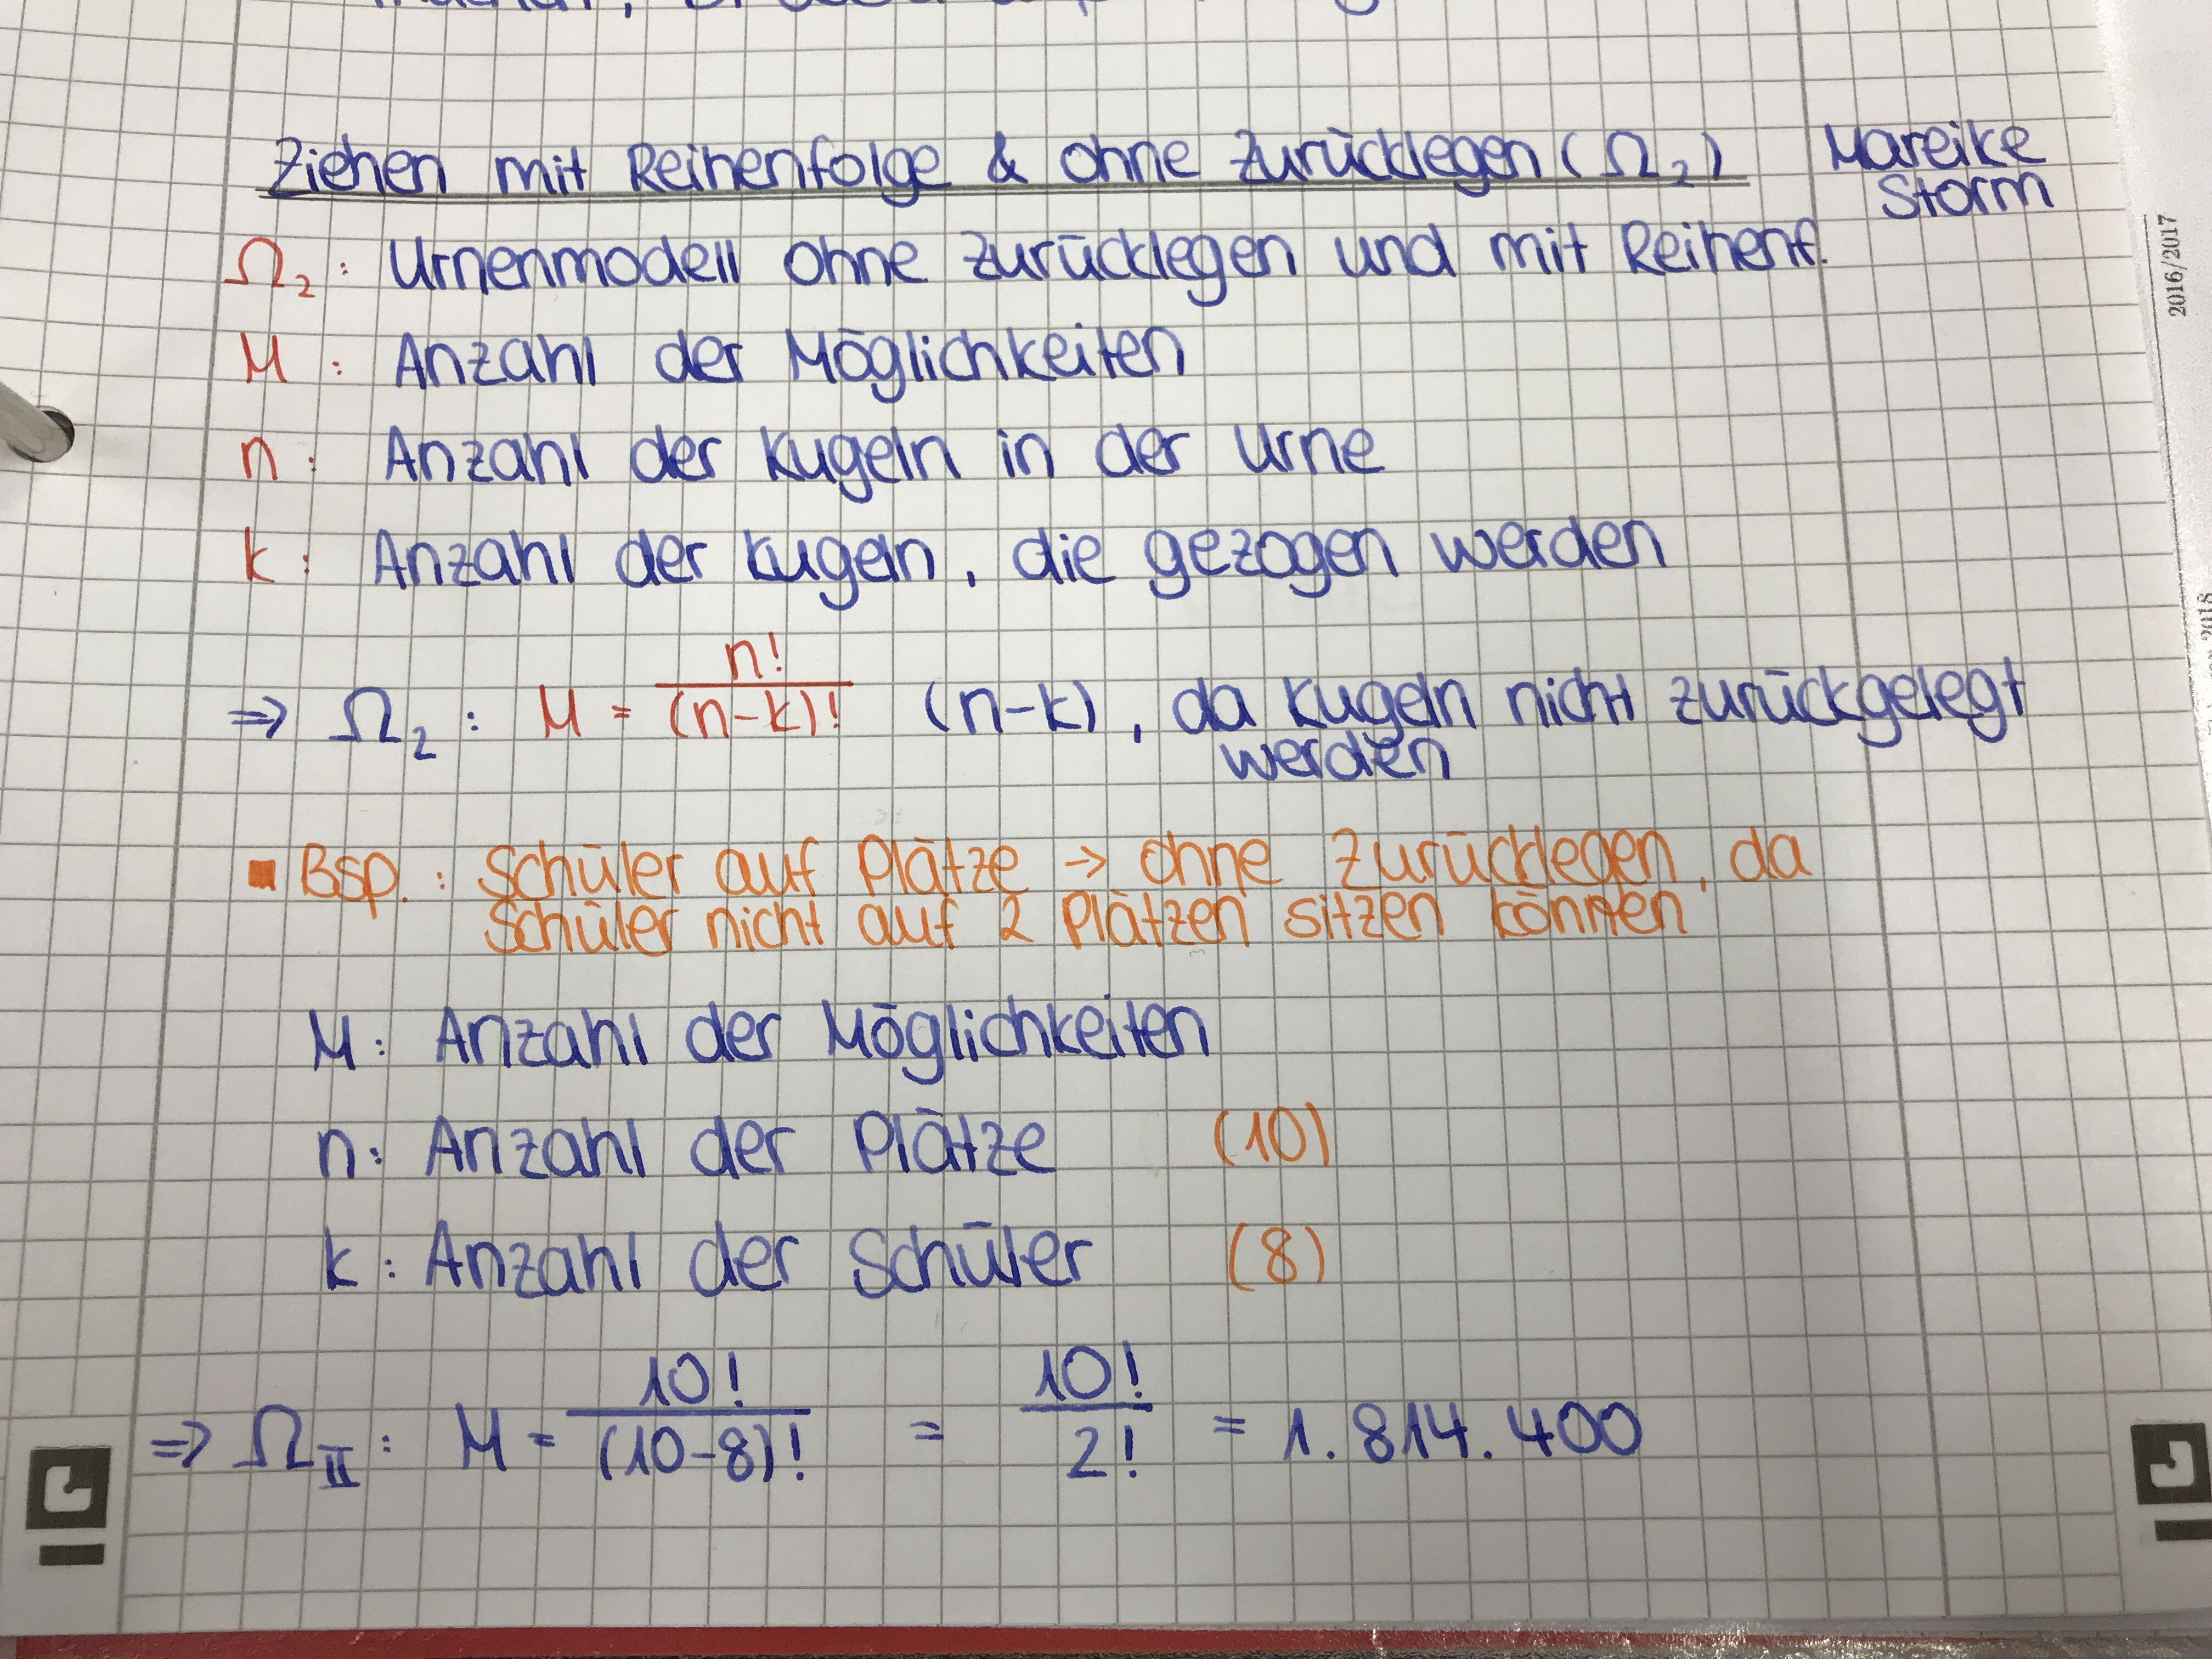 Ziehen mit Reihenfolge & ohne Zurücklegen (Ω₂) Mareike Storm
Ω₂: Urnenmodell ohne Zurücklegen und mit Reihenf.
M: Anzahl der Möglichkeiten
n: Anzahl der Kugeln in der Urne
k: Anzahl der Kugeln, die gezogen werden
⇒ Ω₂: M = n!/(n-k)! (n-k), da Kugeln nicht zurückgelegt
werden
Bsp.: Schüler auf Plätze → ohne Zurücklegen, da
Schüler nicht auf 2 Plätzen sitzen können
M: Anzahl der Möglichkeiten
n: Anzahl der Plätze (10)
k: Anzahl der Schüler (8)
⇒ Ω_II: M = 10!/(10-8)! = 10!/2! = 1.814.400
2016/2017